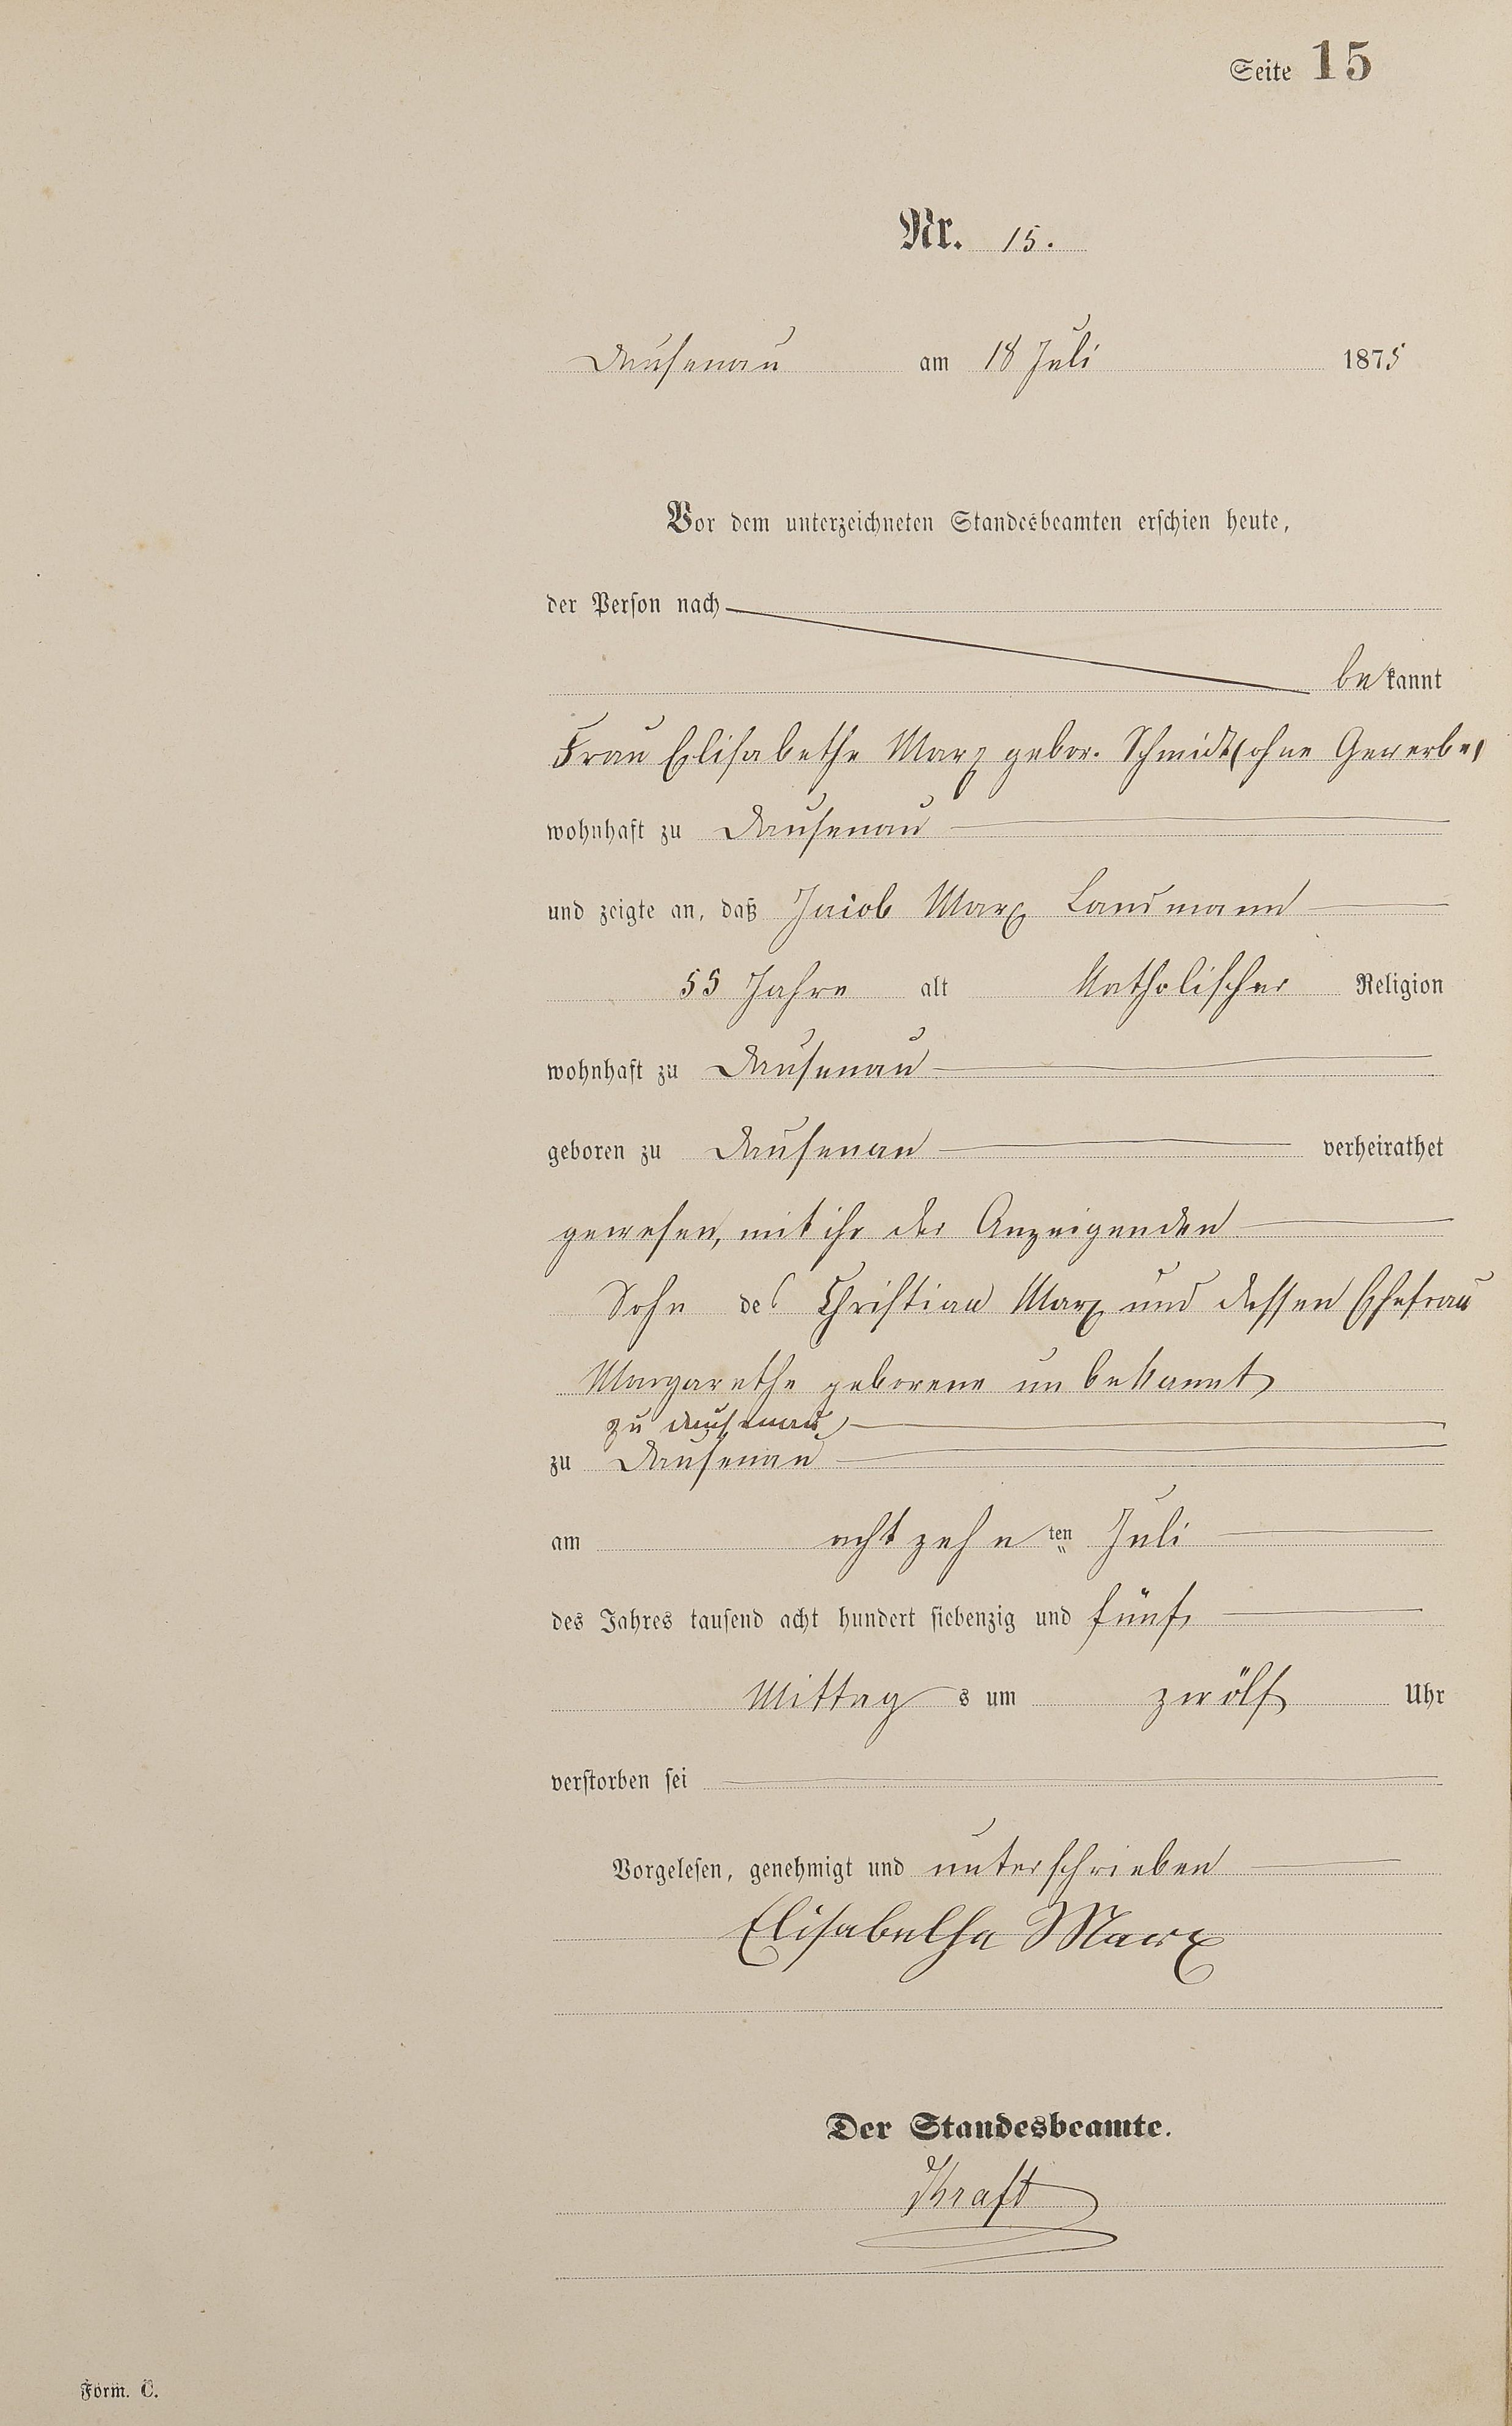 Seite 15
Nr. 15.
Dausenau am 18 Juli 1875
Vor dem unterzeichneten Standesbeamten erschien heute,
der Person nach
bekannt
Frau Elisabethe Marx gebor. Schmidt (ohne Gewerbe)
wohnhaft zu Dausenau
und zeigte an, daß Jacob Marx Landmann
55 Jahre alt Katholischer Religion
wohnhaft zu Dausenau
geboren zu Dausenau verheirathet
gewesen, mit ihr der Anzeigenden
Sohn des Christian Marx und dessen Ehefrau
Margarethe geborene unbekannt
zu Dausenau
zu Dausenau
am achtzehnten Juli
des Jahres tausend acht hundert siebenzig und fünf
Mittags um zwölf Uhr
verstorben sei
Vorgelesen, genehmigt und unterschrieben
Elisabetha Marx
Der Standesbeamte.
Kraft
Form. C.